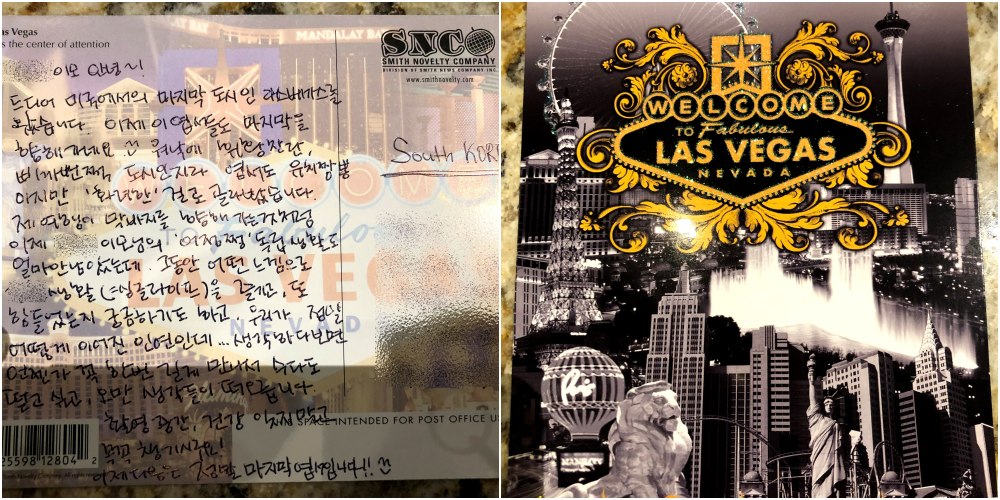 as Vegas
s the center of attention
이모 안녕~!
드디어 미국에서의 마지막 도시인 라스베가스를
왔습니다. 이제 이 엽서들도 마지막을
향해 가네요 워낙에 휘황찬란,
삐까번쩍 도시인지라 엽서도 유치짬뽕
하지만 '화려한' 걸로 골라봤습니다.
제 여행이 막바지를 향해 가는 것처럼
이제 이모님의 '어정쩡' 독립생활도
얼마 안 남았는데. 그동안 어떤 느낌으로
생활(=싱글라이프)을 즐겼고, 또
힘들었는지 궁금하기도 하고. 우리가 정말
어떻게 이어진 인연인데... 생각하다보면
언젠가 꼭 한번 길게 만나서 수다도
떨고 싶고, 오만 생각들이 떠오릅니다.
건강 잊지말고
먹고 챙기시구요!
이제 다음은 정말 마지막 엽서입니다!!
MANDALAY BAY
SNCO
SMITH NOVELTY COMPANY
DIVISION OF SMITH NEWS COMPANY INC.
www.smithnovelty.com
South KOR
SPACE INTENDED FOR POST OFFICE U
25598 12804 2
WELCOME
TO Fabulous
LAS VEGAS
NEVADA
Paris
MANDALAY